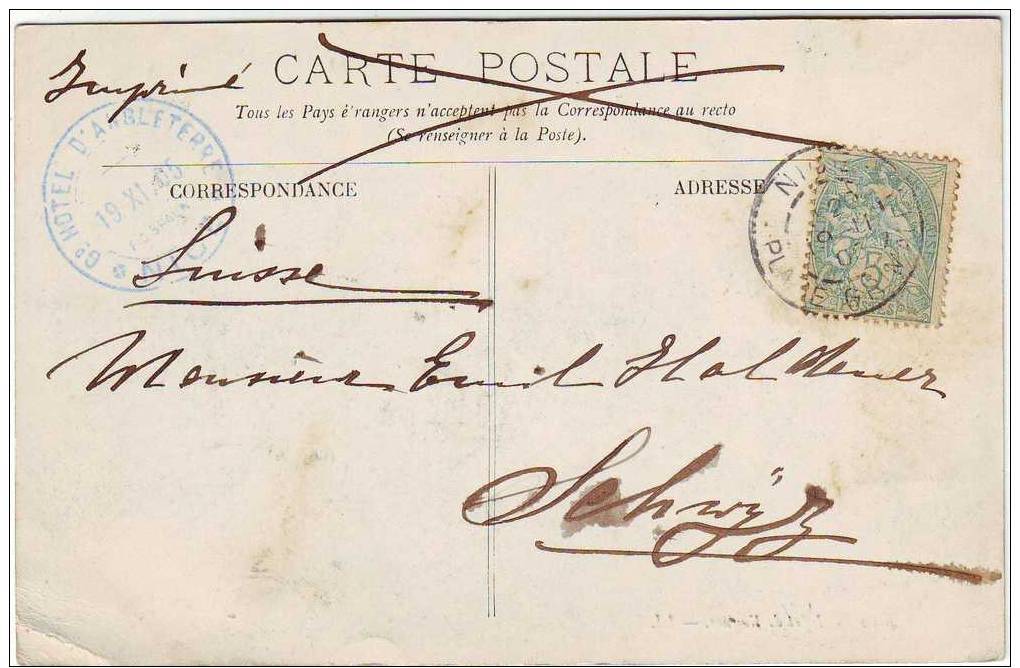 Imprimé
CARTE POSTALE
Tous les Pays é'rangers n'acceptent pas la Correspondance au recto
(Se renseigner à la Poste).
Gᴅ HOTEL D'ANGLETERRE
19 XI 05
NICE
CORRESPONDANCE
ADRESSE
PLACE GRIM
5
Suisse
Monsieur Emil Holdener
Schwÿz